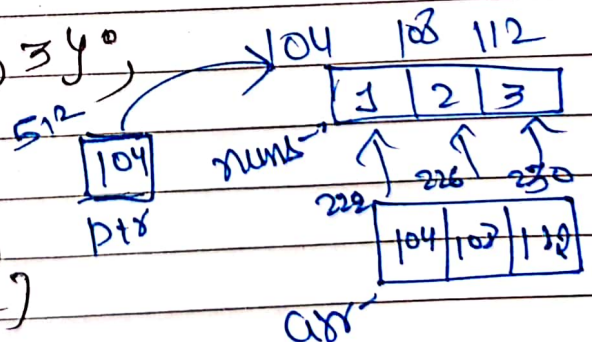 , 3};
104 108 112
1 2 3
512
104
nums
ptr
222 226 230
104 108 112
arr